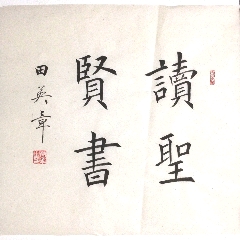 讀聖
賢書
田英章